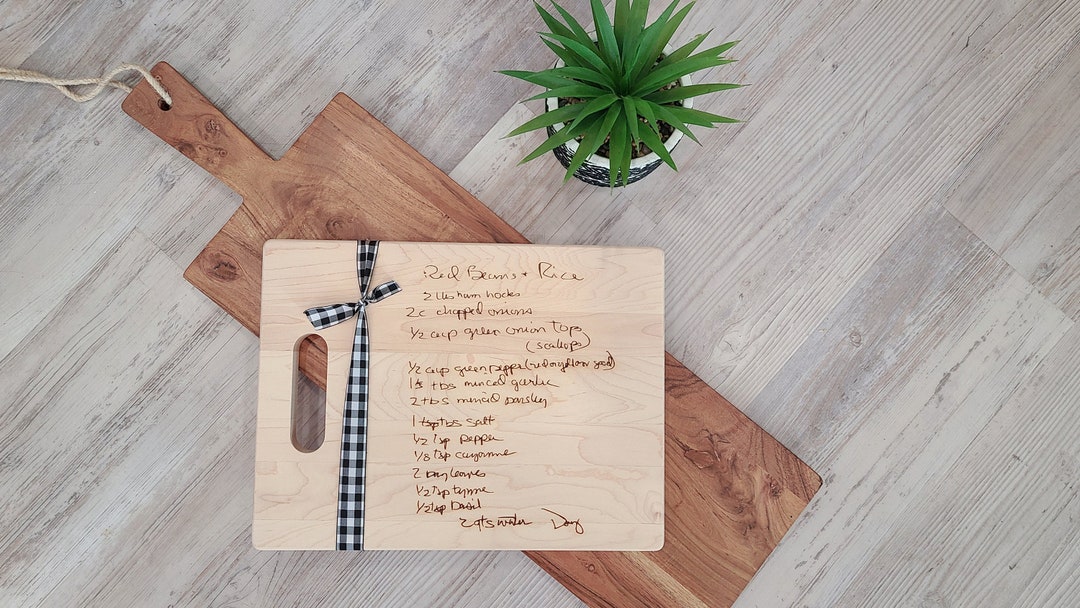 Red Beans + Rice
2 lbs ham hocks
2c chopped onions
1/2 cup green onion tops
(scallops)
1/2 cup green pepper (red or yellow good)
tbs minced garlic
2 tbs minced parsley
1 tbs salt
1/2 tsp pepper
1/8 tsp cayenne
2 bay leaves
1/2 tsp tyme
1/2 tsp basil
2 qts water